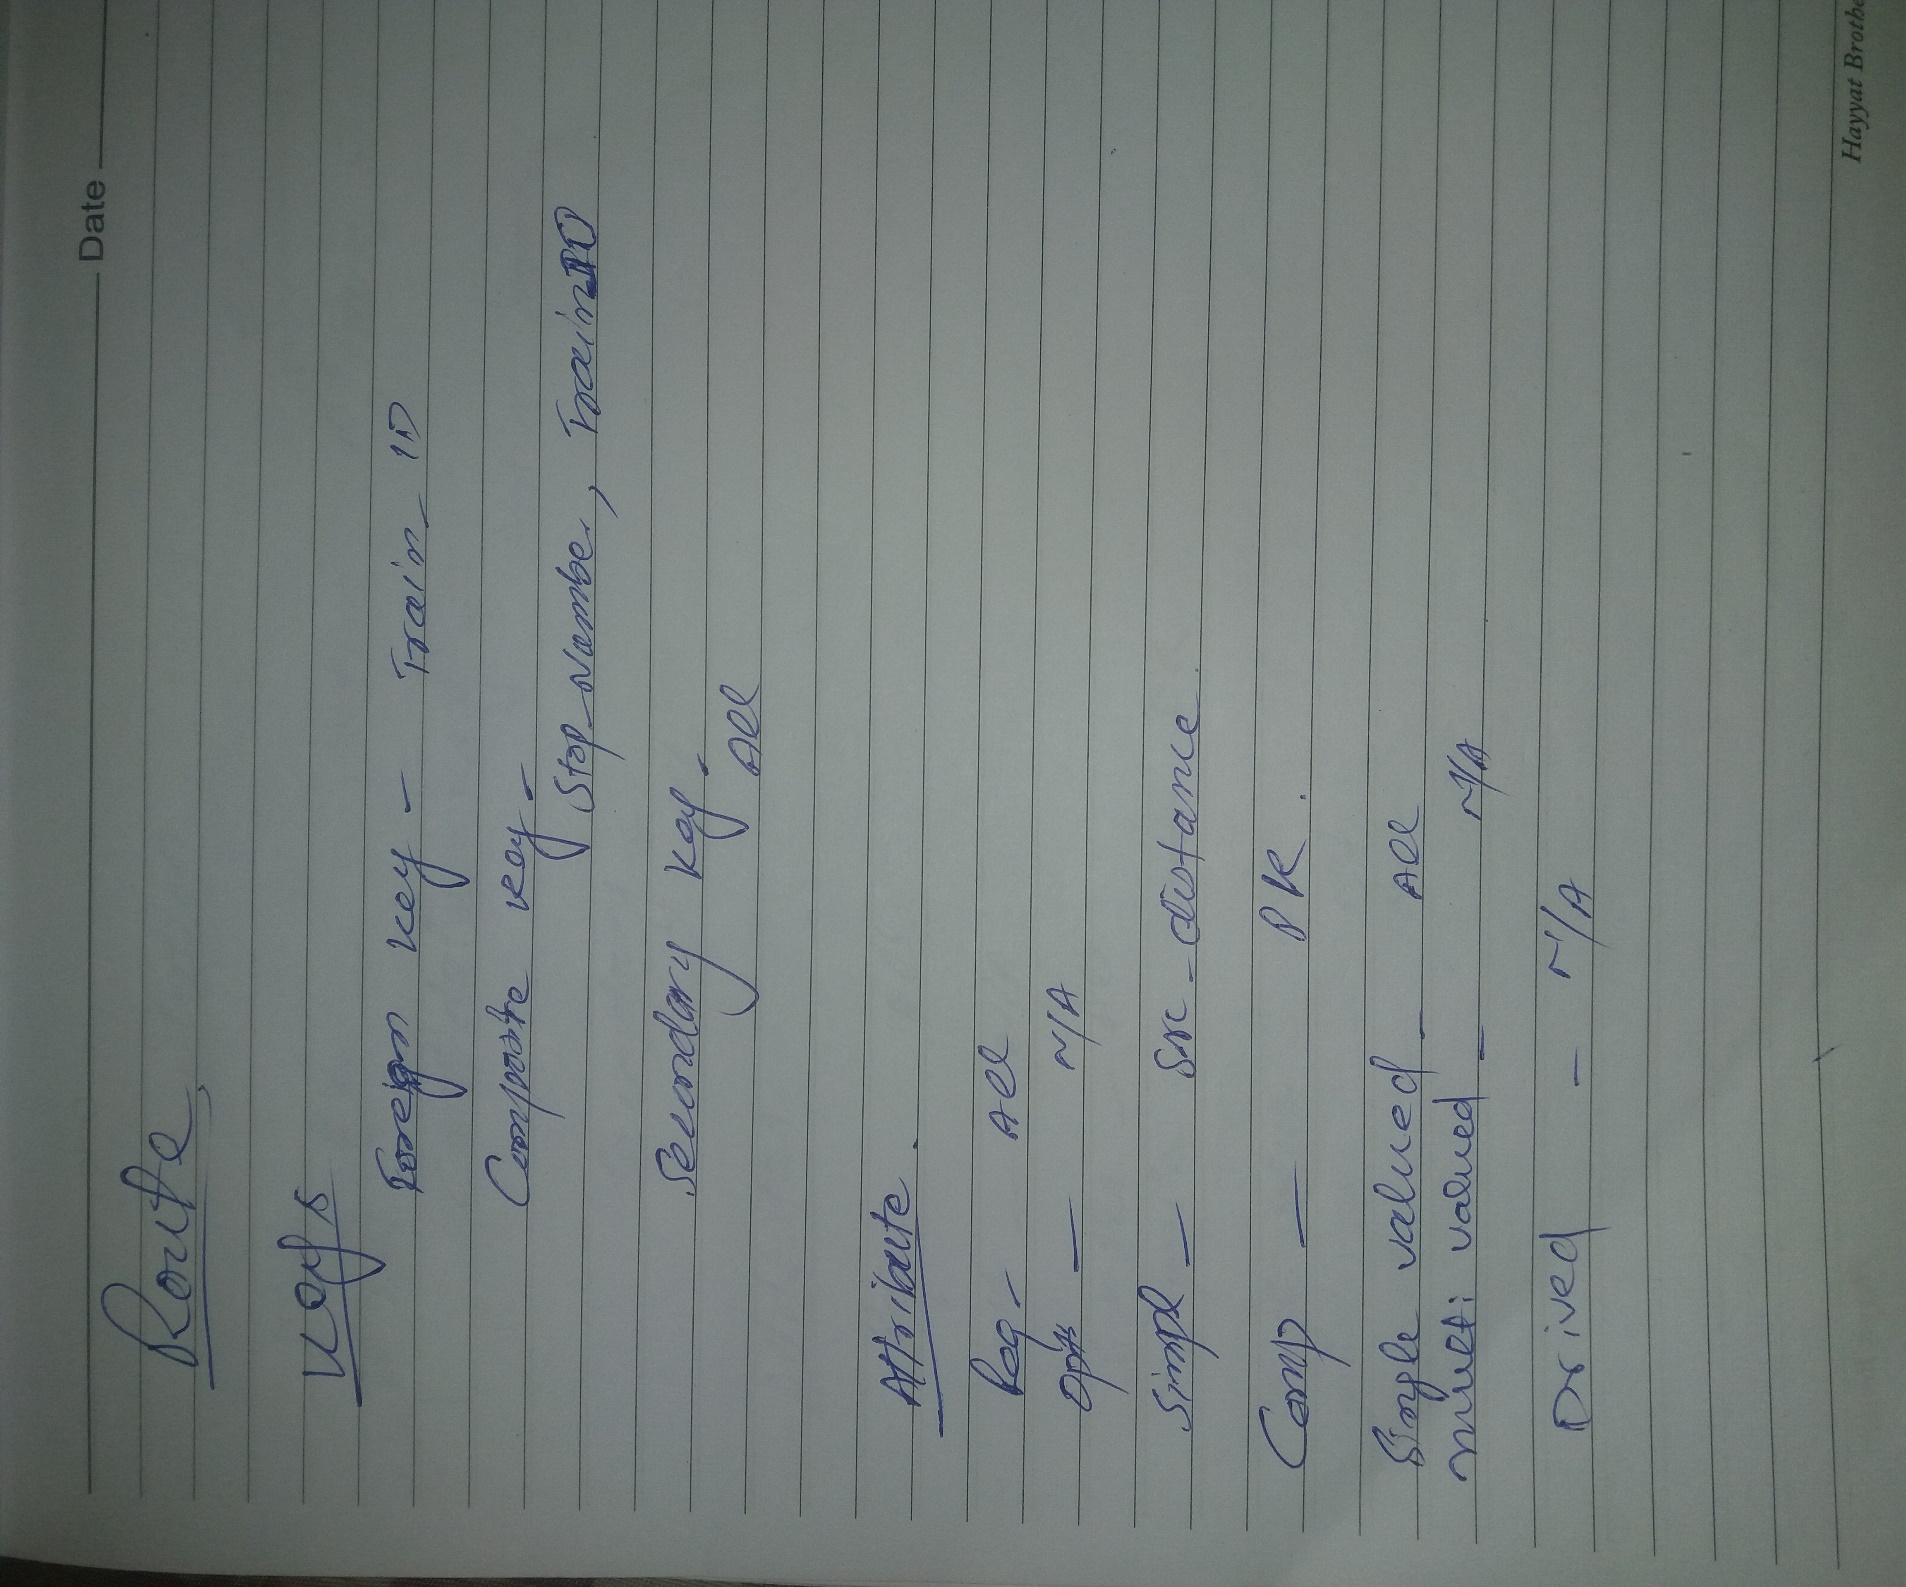 Date
Route,
Keys
Foreign key - Train_ID
Composite key -
Stop_Numbe, TrainID
Secondary key.
All
Attribute.
Req - All
Opt — N/A
Simpl — Src_distance.
Comp — PK.
Single valued - All
multi valued - N/A
Drived - N/A
Hayyat Brothe